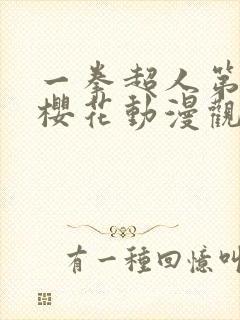 一拳超人第
櫻花動漫觀
有一種回憶叫